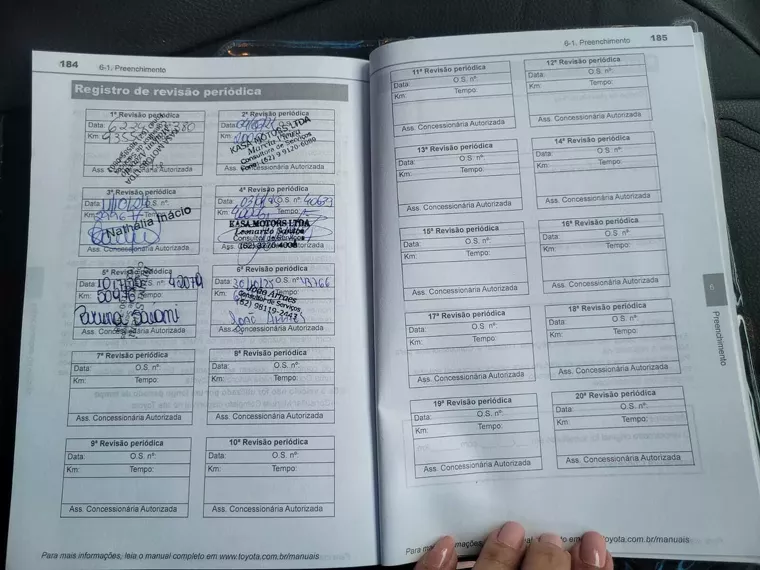 184
6-1. Preenchimento
Registro de revisão periódica
1ª Revisão periódica
Data:
Km:
Ass. Concessionária Autorizada
2ª Revisão periódica
Data:
Km:
KASA MOTORS LTDA
Consultora de Serviços
Fone: (62) 9 9120-6080
Ass. Concessionária Autorizada
3ª Revisão periódica
Data:
Km:
Tempo:
Nathália Inácio
Ass. Concessionária Autorizada
4ª Revisão periódica
Data: O.S. nº:
Km: Tempo:
KASA MOTORS LTDA
Leonardo Santos
Consultor de Serviços
Ass. Concessionária Autorizada
5ª Revisão periódica
Data: S. nº: 42079
Km: 50496
Bruna Saomi
Ass. Concessionária Autorizada
6ª Revisão periódica
Data:
Km:
João Arraes
Consultor de Serviços
(62) 98119-2442
Ass. Concessionária Autorizada
7ª Revisão periódica
Data: O.S. nº:
Km: Tempo:
Ass. Concessionária Autorizada
8ª Revisão periódica
Data: O.S. nº:
Km: Tempo:
Ass. Concessionária Autorizada
9ª Revisão periódica
Data: O.S. nº:
Km: Tempo:
Ass. Concessionária Autorizada
10ª Revisão periódica
Data: O.S. nº:
Km: Tempo:
Ass. Concessionária Autorizada
Para mais informações, leia o manual completo em www.toyota.com.br/manuais
6-1. Preenchimento
185
11ª Revisão periódica
Data: O.S. nº:
Km: Tempo:
Ass. Concessionária Autorizada
12ª Revisão periódica
Data: O.S. nº:
Km: Tempo:
Ass. Concessionária Autorizada
13ª Revisão periódica
Data: O.S. nº:
Km: Tempo:
Ass. Concessionária Autorizada
14ª Revisão periódica
Data: O.S. nº:
Km: Tempo:
Ass. Concessionária Autorizada
15ª Revisão periódica
Data: O.S. nº:
Km: Tempo:
Ass. Concessionária Autorizada
16ª Revisão periódica
Data: O.S. nº:
Km: Tempo:
Ass. Concessionária Autorizada
17ª Revisão periódica
Data: O.S. nº:
Km: Tempo:
Ass. Concessionária Autorizada
18ª Revisão periódica
Data: O.S. nº:
Km: Tempo:
Ass. Concessionária Autorizada
19ª Revisão periódica
Data: O.S. nº:
Km: Tempo:
Ass. Concessionária Autorizada
20ª Revisão periódica
Data: O.S. nº:
Km: Tempo:
Ass. Concessionária Autorizada
6
Preenchimento
mais informações, em www.toyota.com.br/manuais